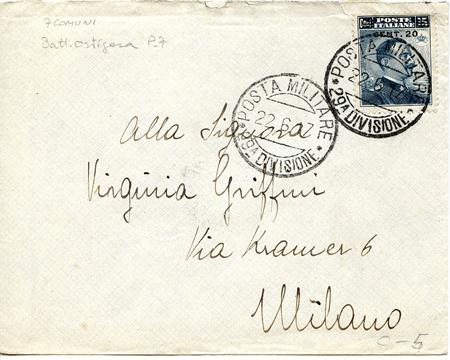 7 COMUNI
Batt. ortigara P.7
POSTE ITALIANE 15
CENT. 20
POSTA MILITARE
22.6.17
29A DIVISIONE
POSTA MILITARE
22.6.17
29A DIVISIONE
Alla Signora
Virginia Griffini
Via Kramer 6
Milano
C-5